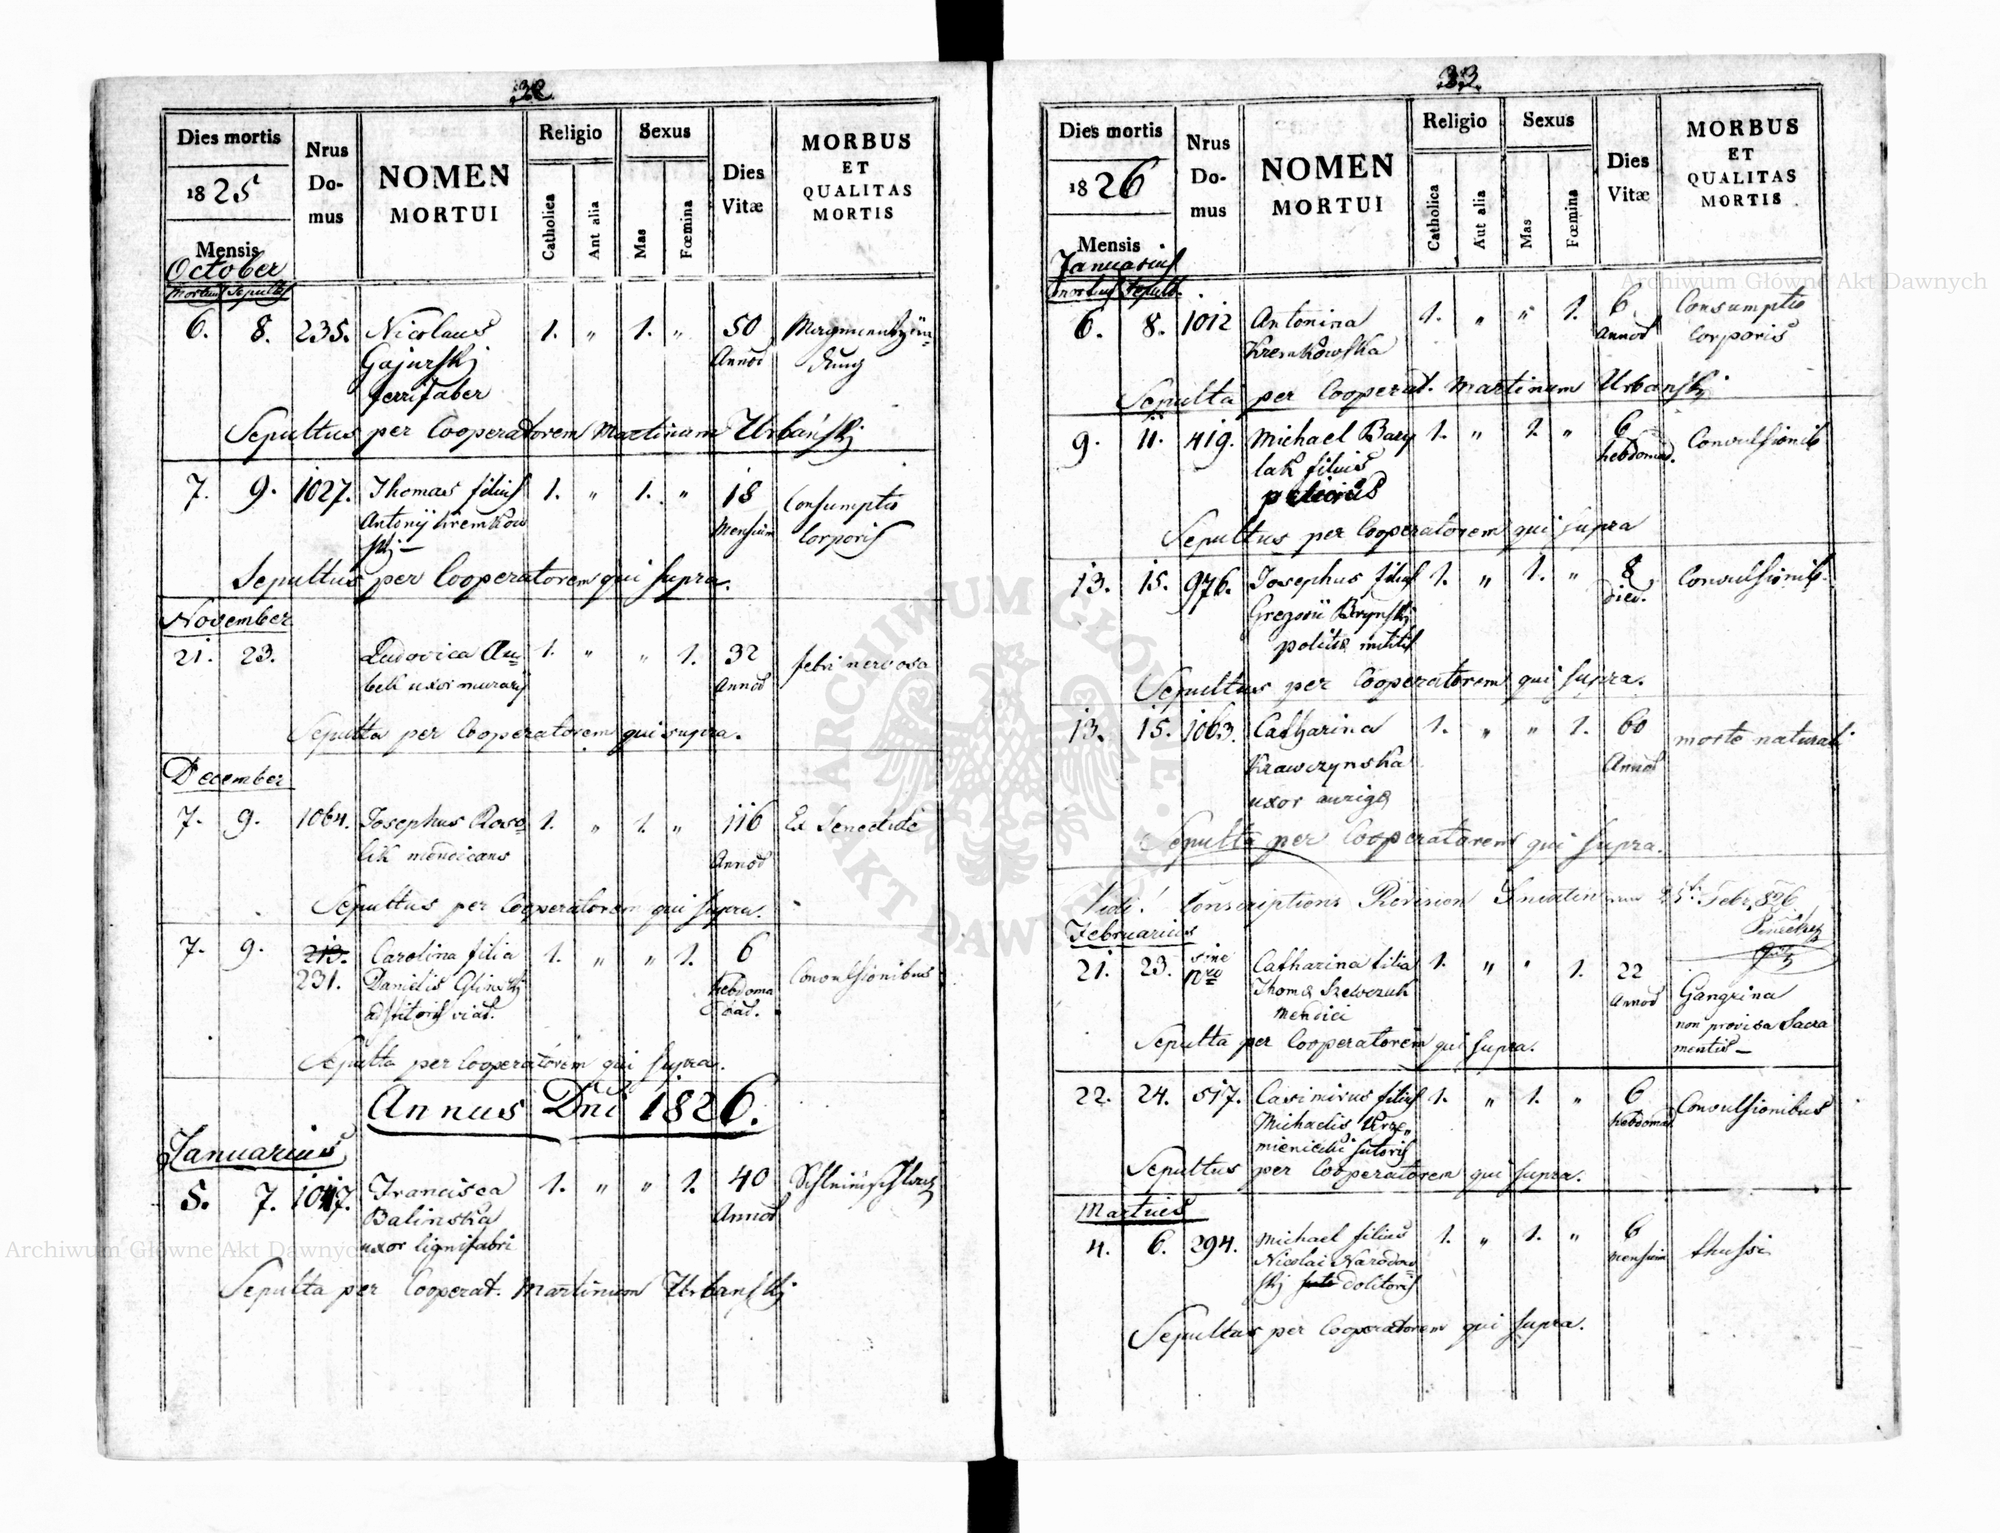 32.
Dies mortis
1825
Mensis
October
mortuus sepultus
Nrus Do-
mus
NOMEN
MORTUI
Religio
Catholica
Aut alia
Sexus
Mas
Fœmina
Dies
Vitæ
MORBUS
ET
QUALITAS
MORTIS
6. 8. 235. Nicolaus 1. " 1. " 50
Gajurskj Annor
ferrifaber
Sepultus per Cooperatorem Martinum Urbańskj
7. 9. 1027. Thomas filius 1. " 1. " 18 Consumptio
Antonij Kremkow Mensium Corporis
skj —
Sepultus per Cooperatorem qui supra.
November
21. 23. Ludovica 1. " " 1. 32 febri nervosa
bek uxor murarij Annor
Sepulta per Cooperatorem qui supra.
December
7. 9. 1064. Josephus Roso 1. " 1. " 116 Ex Senectute
lik mendicans Annor
Sepultus per Cooperatorem qui supra.
7. 9. 213. Carolina filia 1. " " 1. 6 Convulsionibus
231. Danielis Glinskj hebdoma
dad.
Sepulta per Cooperatorem qui supra.
Annus Dni 1826.
Januarius
5. 7. 1047. Francisca 1. " " 1. 40
Balinska Annor
uxor lignifabri
Sepulta per Cooperat. Martinum Urbanskj
33.
Dies mortis
1826
Mensis
Januarius
mortuus sepult.
Nrus
Do-
mus
NOMEN
MORTUI
Religio
Catholica
Aut alia
Sexus
Mas
Fœmina
Dies
Vitæ
MORBUS
ET
QUALITAS
MORTIS
6. 8. 1012 Antonina 1. " " 1. 6 Consumptio
Kremkowska Annor Corporis
Sepulta per Cooperat. Martinum Urbanskj
9. 11. 419. Michael Bary 1. " 1. " 6 Convulsionib
lak filius hebdomad.
Sepultus per Cooperatorem qui supra
13. 15. 976. Josephus filius 1. " 1. " 8 Convulsionib.
Gregorii Brynskj dier.
militis
Sepultus per Cooperatorem qui supra.
13. 15. 1063. Catharina 1. " " 1. 60 morte naturali
Krawczynska Annor
uxor aurigę
Sepulta per Cooperatorem qui supra.
Vidi! Conscriptions Revision Febr. 826
Februarius
21. 23. sine Nro Catharina filia 1. " " 1. 22 Gangrina
Thomę Szewczuk Annor non provisa Sacra
mendici mentis —
Sepulta per Cooperatorem qui supra.
22. 24. 517. Casimirus filius 1. " 1. " 6 Convulsionibus
Michaelis Krze„ hebdomad.
mienicki sutoris
Sepultus per Cooperatorem qui supra.
Martius
4. 6. 294. Michael filius 1. " 1. " 6 thussi
Nicolai Narodow mensium
skj dolitoris
Sepultus per Cooperatorem qui supra.
Archiwum Główne Akt Dawnych
Archiwum Główne Akt Dawnych
ARCHIWUM GŁÓWNE
AKT DAWNYCH